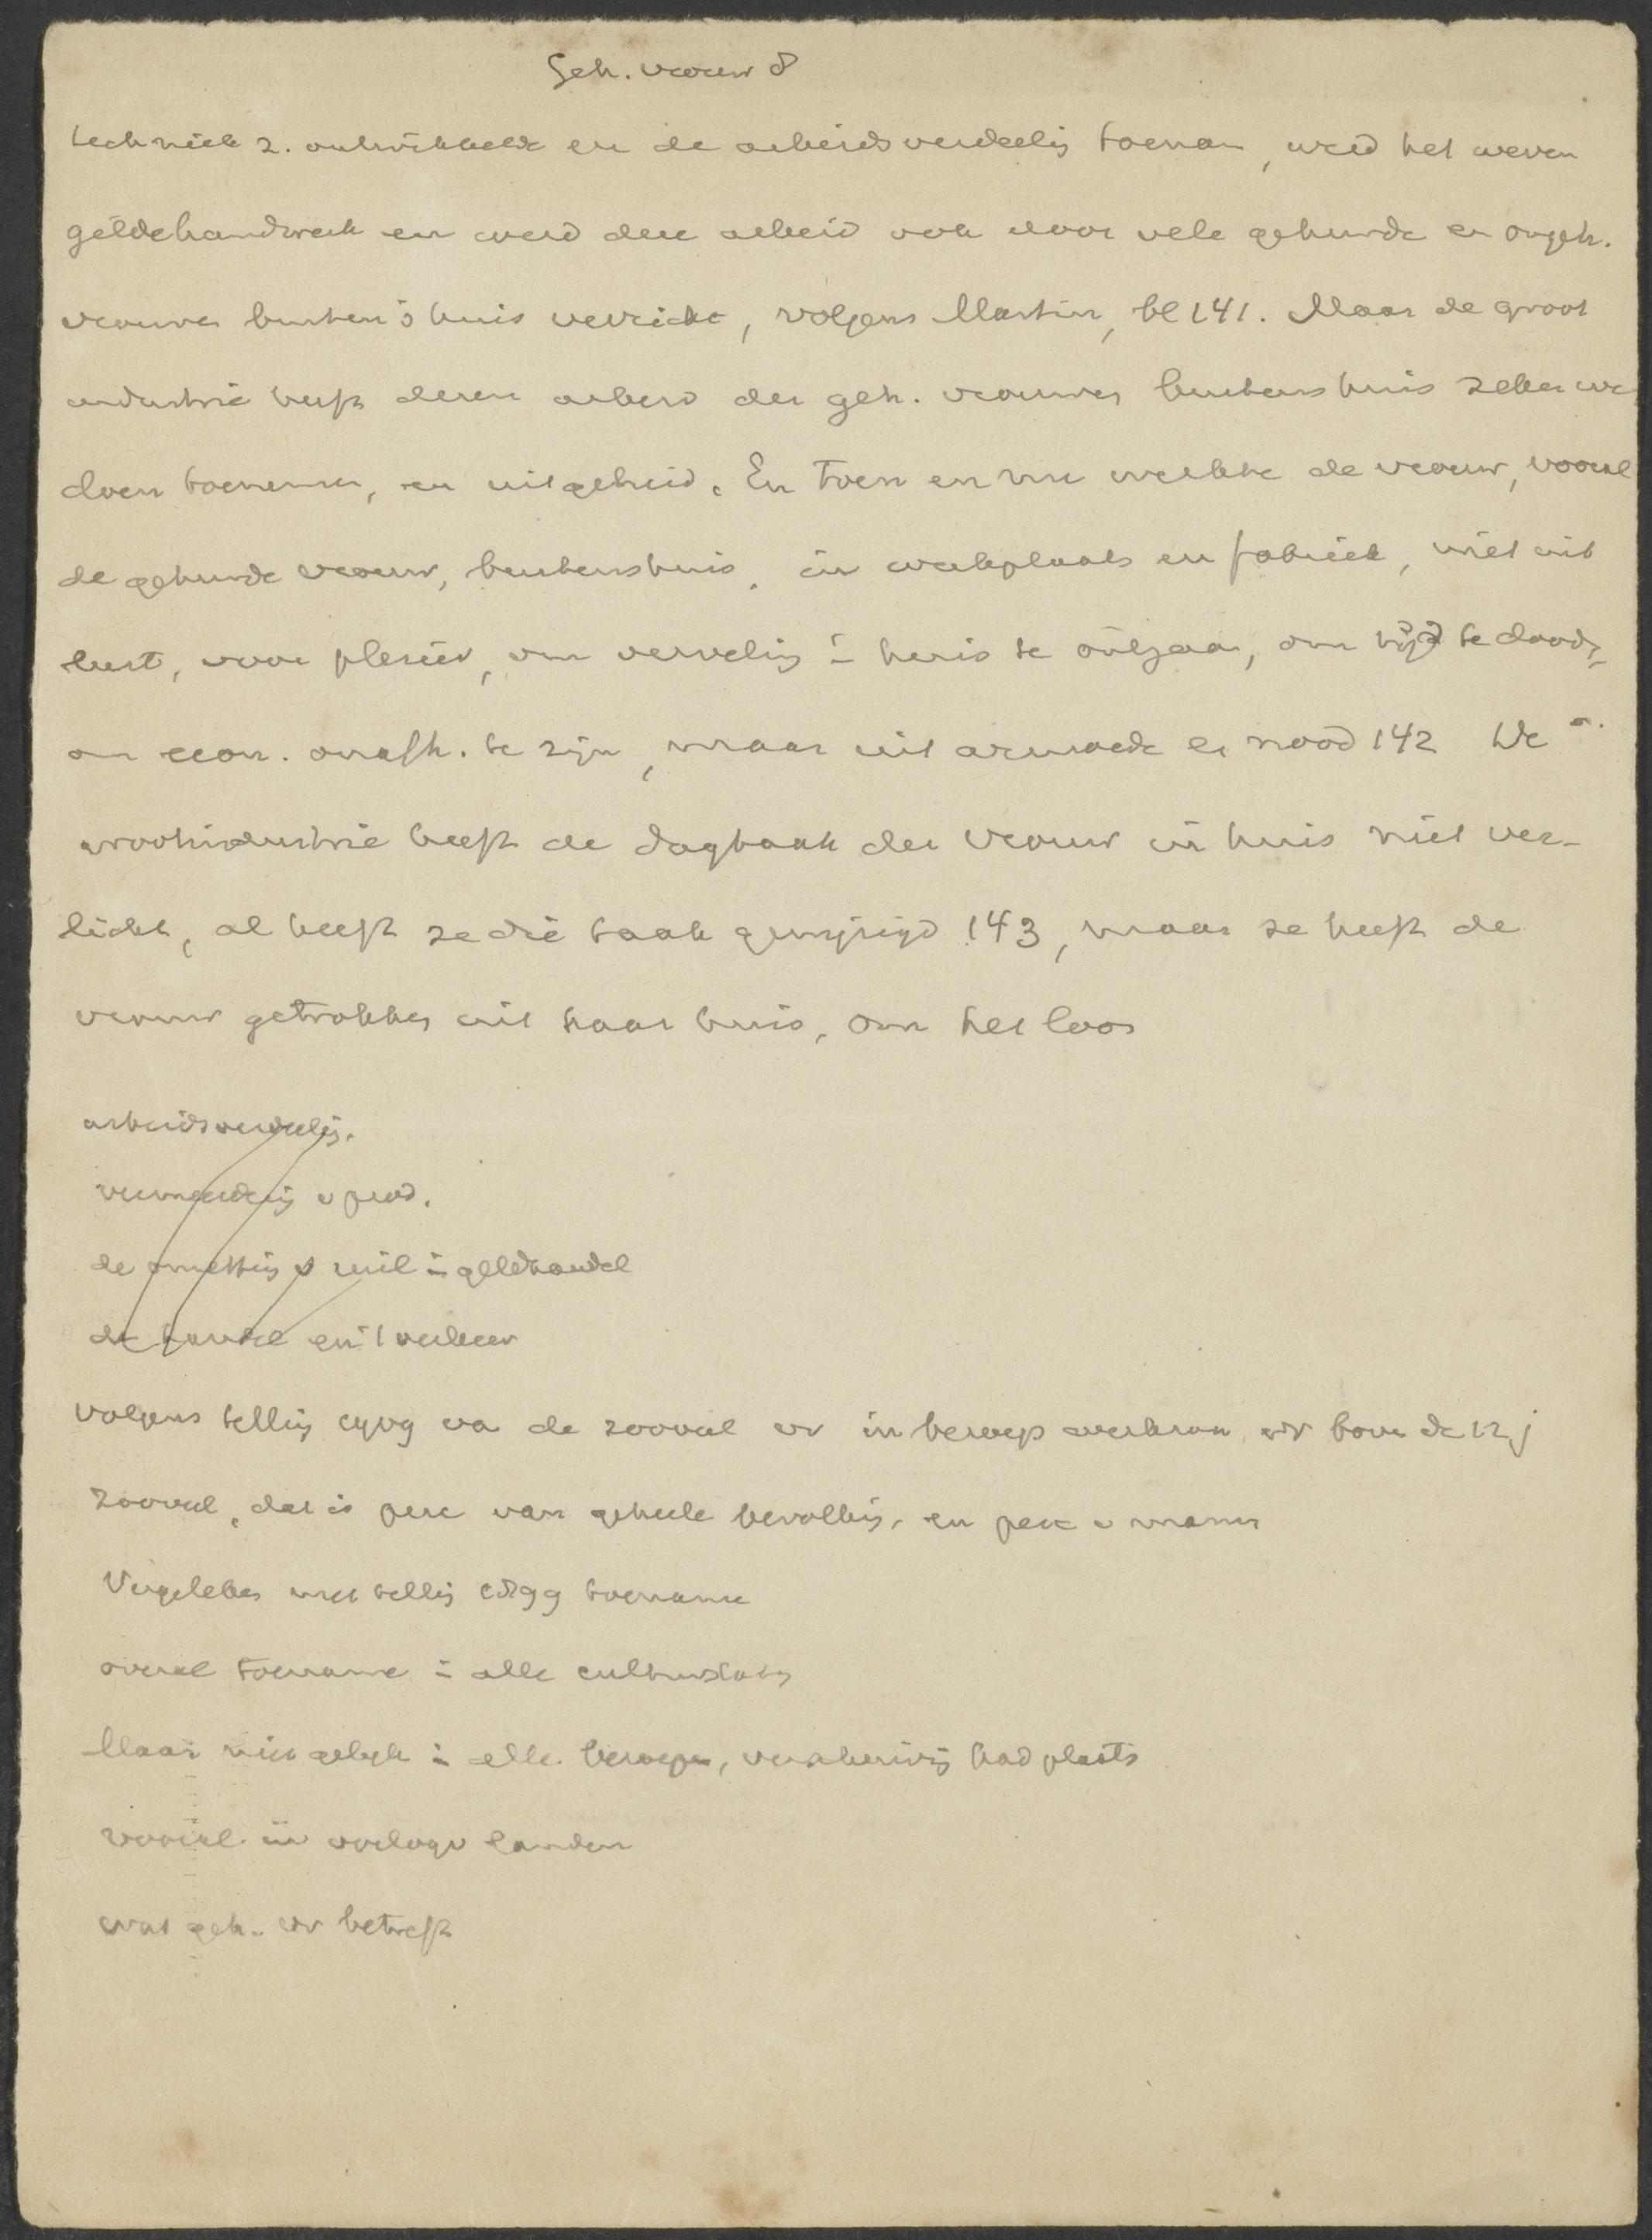 Geh. vrouw 8
techniek z. ontwikkelde en de arbeidsverdeelig toenam, werd het weven
gildehandwerk en werd deze arbeid ook door vele gehuwde en ongeh.
vrouwen buiten 's huis verricht, volgens Martin, bl 141. Maar de groot
industrie heeft dezen arbeid der geh. vrouwen buitenshuis zeker
doen toenemen, en uitgebreid. En toen en nu werkte de vrouw, vooral
de gehuwde vrouw, buitenshuis, in werkplaats en fabriek, niet uit
lust, voor plezier, om verveling i huis te ontgaan, om tijd te dooden,
om econ. onafh. te zijn, maar uit armoede en nood 142 De
grootindustrie heeft de dagtaak der vrouw in huis niet ver-
licht, al heeft ze die taak gewijzigd 143, maar ze heeft de
vrouw getrokken uit haar huis, om het loon
arbeidsverdeelig.
vermeerderig v prod.
de omzettig v ruil i geldhandel
de handel en 't verkeer
volgens tellig 1909 va de zooveel vr in beroep werkzaam vr boven de 12 j
zooveel, dat is perc van geheele bevolkig, en perc v mannen
Vergeleken met tellig 1899 toename
overal toename i alle cultuurstaten
Maar niet gelijk i alle beroepen, verschuivig had plaats
vooral in oorlogv landen
wat geh. vr betreft